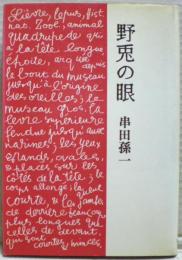 野兎の眼
串田孫一
Lièvre, lepus, Hist.
nat. Zool., animal
quadrupède qui
a la tête longue
étroite, arquée depuis
le bout du museau
jusqu'à l'origine
des oreilles; le
museau gros, la
levre supérieure
fendue jusqu'aux
narines; les yeux
grands, ovales,
placés sur les
côtés de la tête; le
corps allongé; la queue
courte, & les jambes
de derrière
plus longues que
celles de devant,
qui sont courtes, minces,